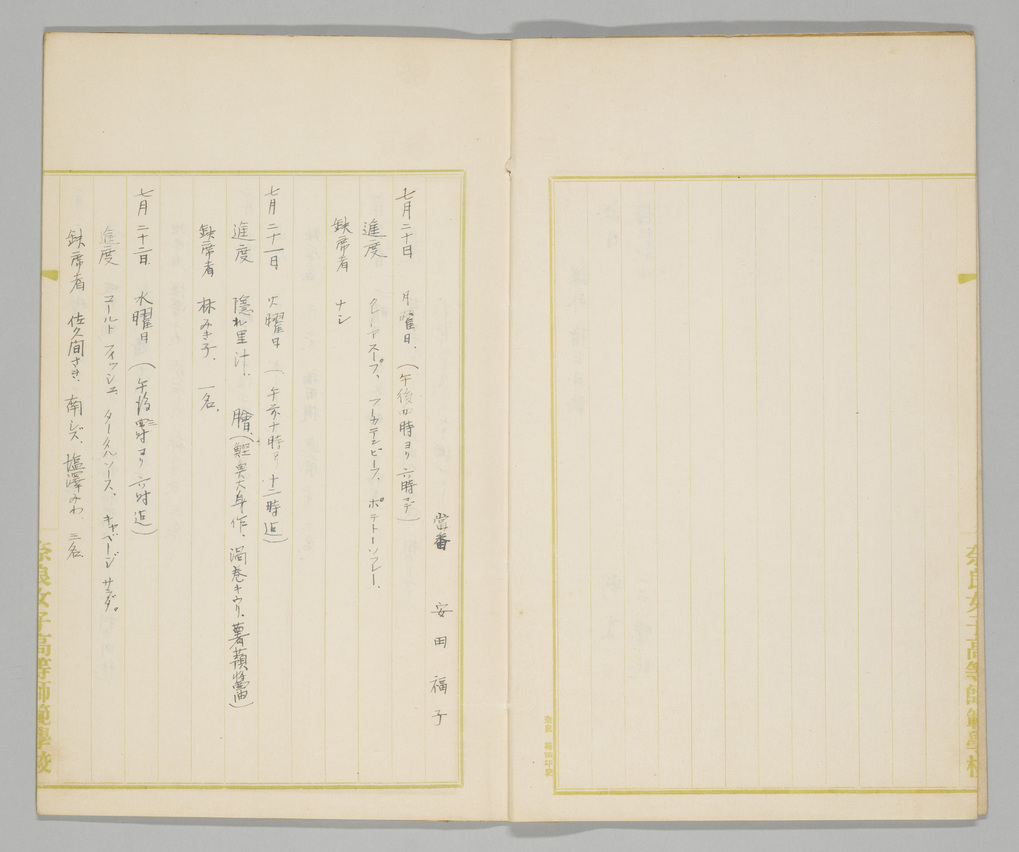 当番 安田福子
七月二十日 月曜日、(午後四時ヨリ六時マデ)
進度 スープ、 ビーフ、 ポテトースフレー、
缺席者 ナシ
七月二十一日 火曜日 (午前十時ヨリ十二時迄)
進度 隠れ里汁、 膾、(鰹 作、渦巻キウリ、薯蕷醤油)
缺席者 林みき子、一名、
七月二十二日 水曜日 (午後 時ヨリ六時迄)
進度 コールドフィッシユ、タータルソース、キャベージサラダ。
缺席者 佐久間さき、南シズ、塩澤みわ、三名
奈良女子高等師範學校
奈良女子高等師範學校